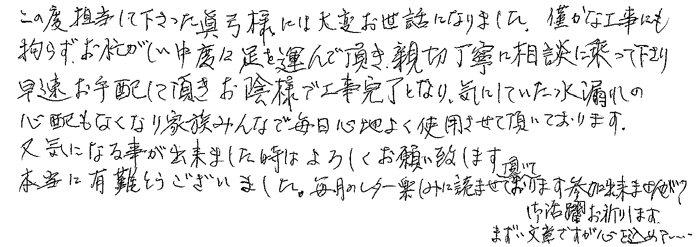 この度担当して下さった眞弓様には大変お世話になりました。僅かな工事にも
拘らず、お忙がしい中度々足を運んで頂き、親切丁寧に相談に乗って下さり
早速お手配して頂きお陰様で工事完了となり、気にしていた水漏れの
心配もなくなり家族みんなで毎日心地よく使用させて頂いております。
又気になる事が出来ました時はよろしくお願い致します。
本当に有難とうございました。毎月のレター楽しみに読ませて頂いております参加出来ませんが
御活躍お祈りします。
まずい文章ですが心を込めて……